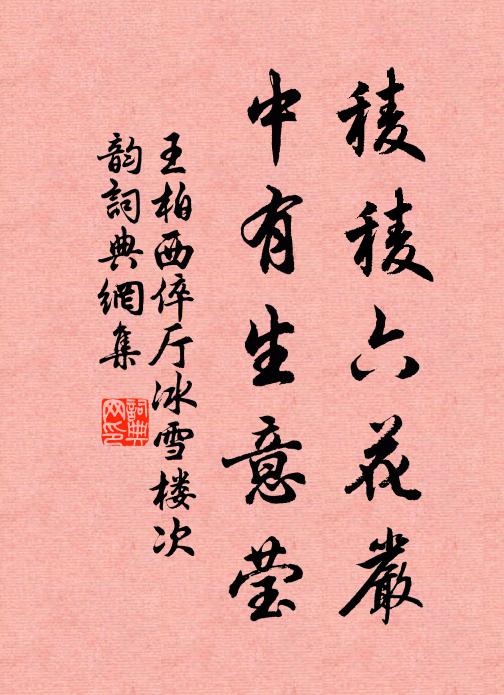 稜稜六花嚴
中有生意莹
王柏西倅厅冰雪楼次
韵詞典網集
詞典網印